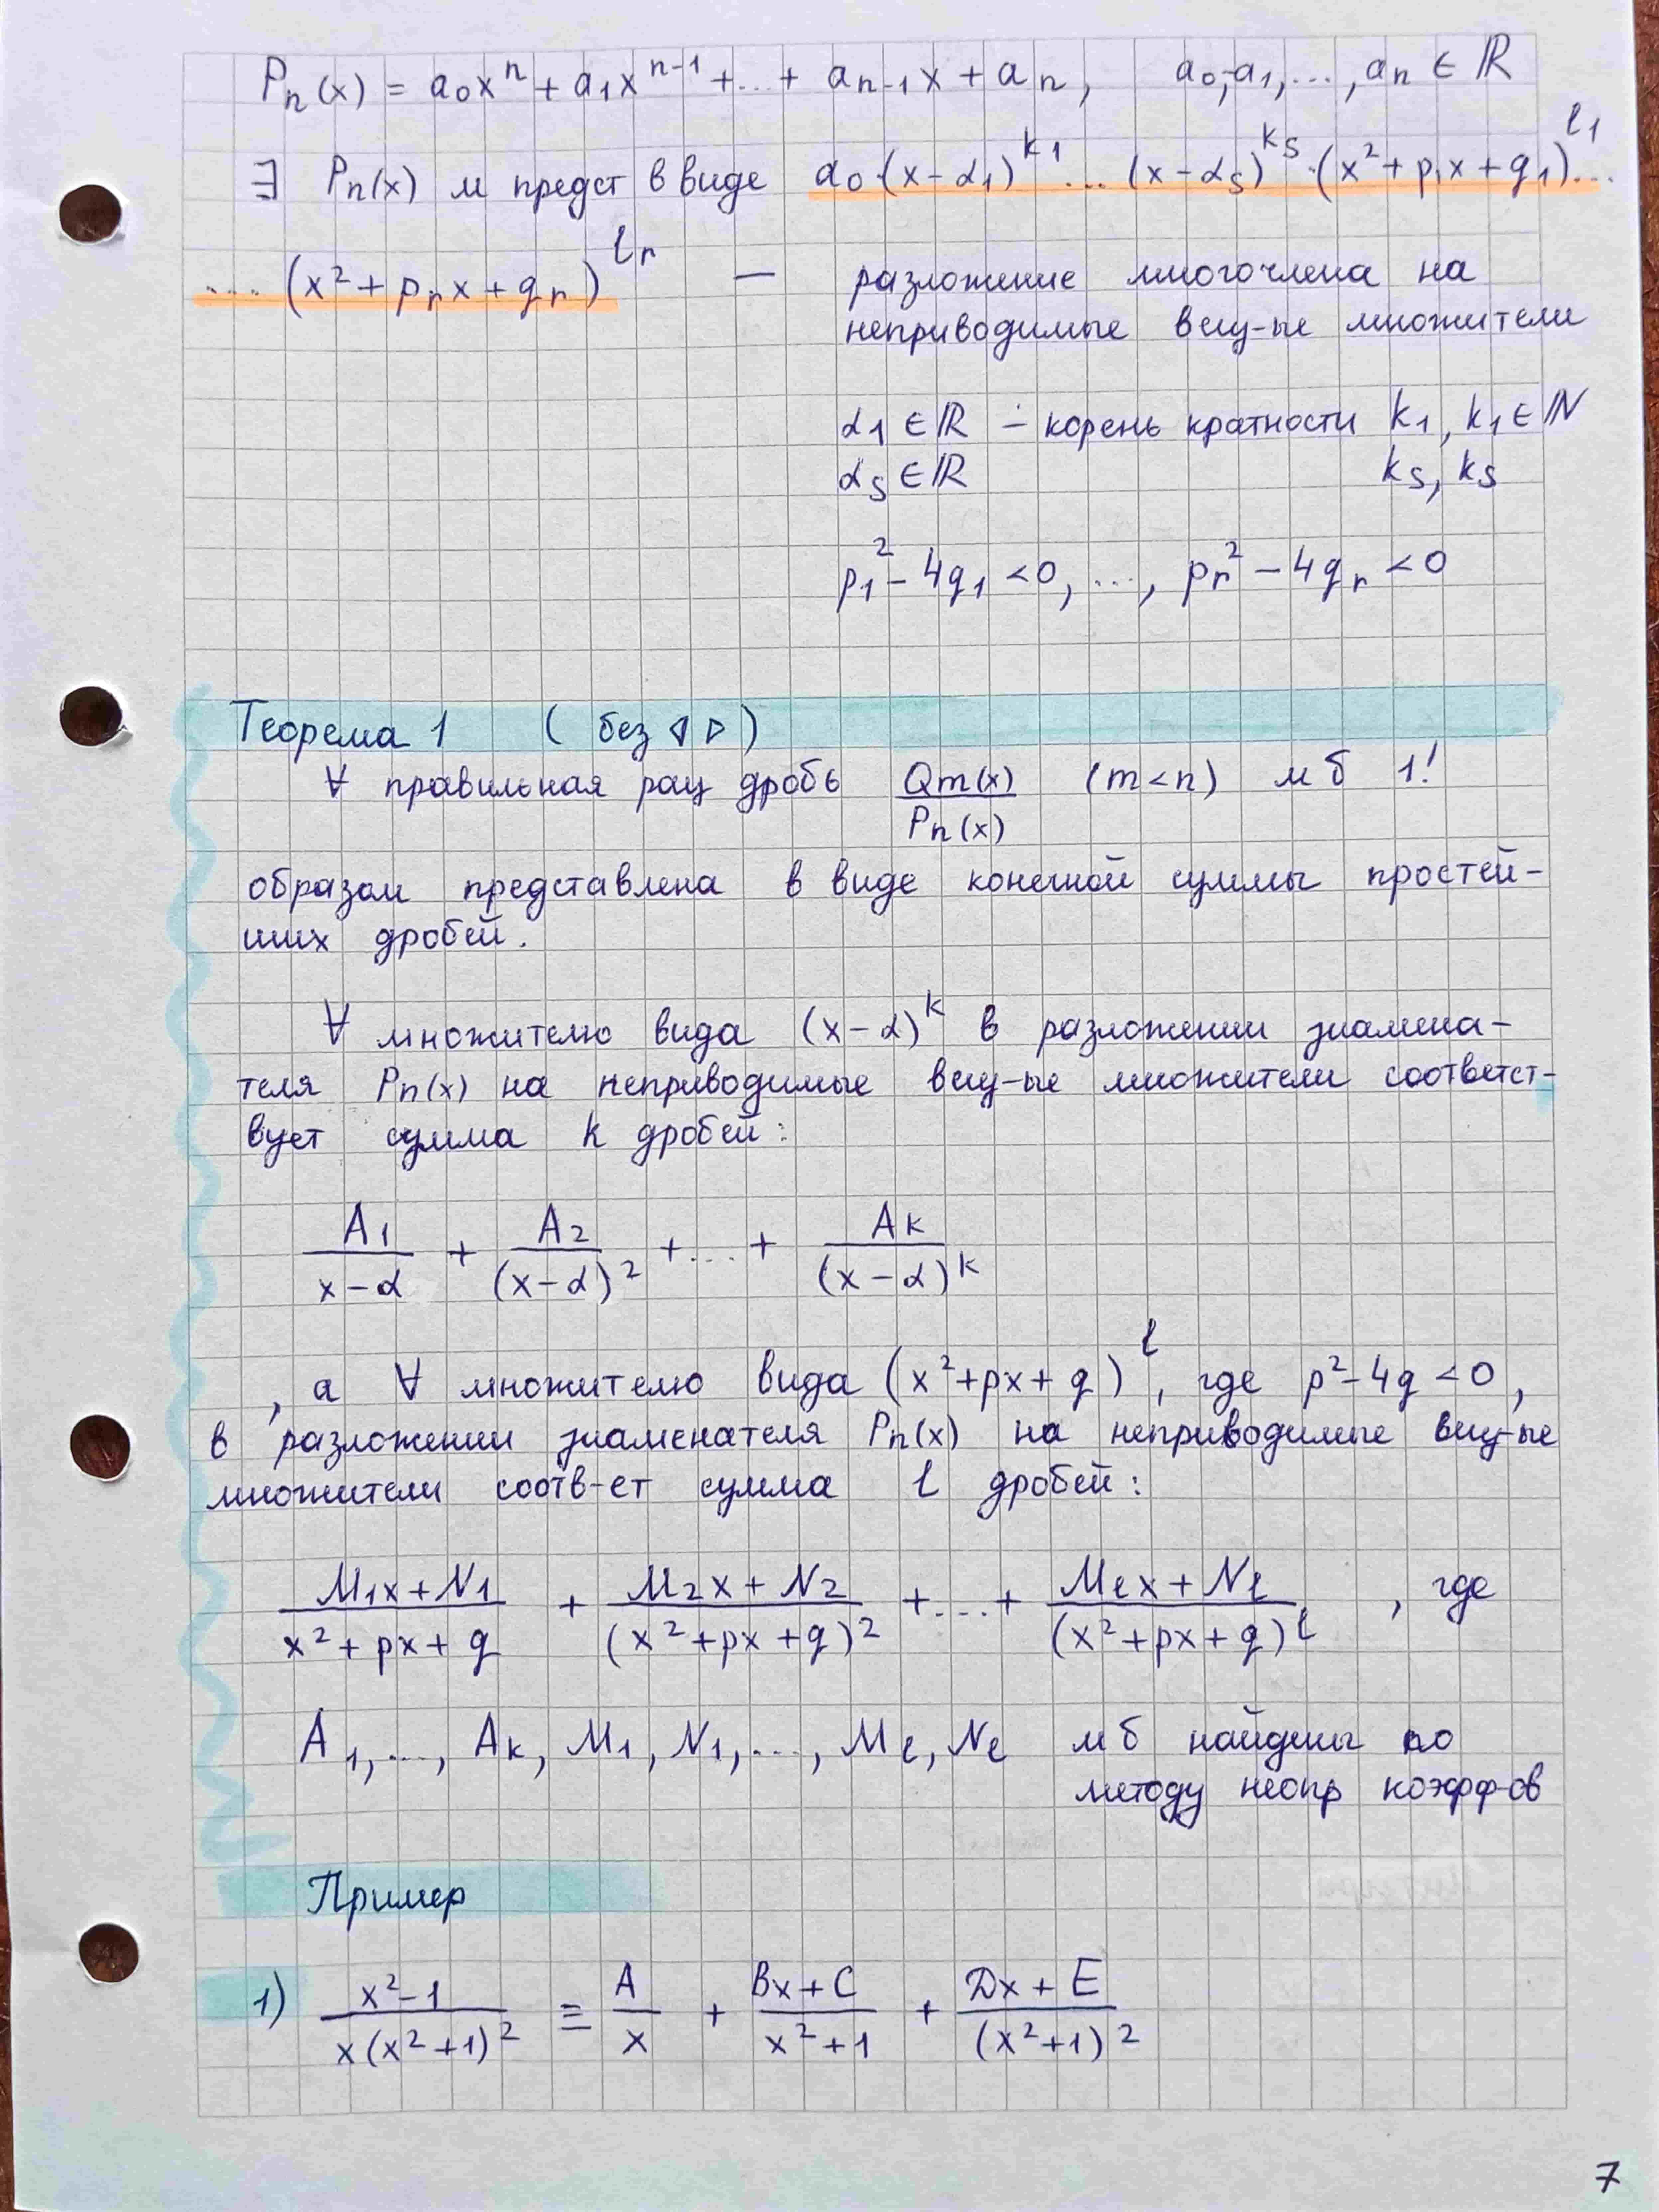 Pₙ(x) = a₀xⁿ + a₁xⁿ⁻¹ + ... + aₙ₋₁x + aₙ, a₀, a₁, ..., aₙ ∈ ℝ
∃ Pₙ(x) м предст в виде a₀·(x-α₁)^k₁ ... (x-α_s)^k_s · (x²+p₁x+q₁)^l₁ ...
... (x²+pᵣx+qᵣ)^lᵣ — разложение многочлена на
неприводимые вещ-ые множители
α₁ ∈ ℝ - корень кратности k₁, k₁ ∈ ℕ
α_s ∈ ℝ k_s, k_s
p₁² - 4q₁ < 0, ..., pᵣ² - 4qᵣ < 0
Теорема 1 (без ◁ ▷)
∀ правильная рац дробь Qm(x)/Pₙ(x) (m<n) м б 1!
образом представлена в виде конечной суммы простей-
ших дробей.
∀ множителю вида (x-α)^k в разложении знамена-
теля Pₙ(x) на неприводимые вещ-ые множители соответст-
вует сумма k дробей:
A₁/(x-α) + A₂/(x-α)² + ... + A_k/(x-α)^k
, а ∀ множителю вида (x²+px+q)^l, где p²-4q<0,
в разложении знаменателя Pₙ(x) на неприводимые вещ-ые
множители соотв-ет сумма l дробей:
(M₁x+N₁)/(x²+px+q) + (M₂x+N₂)/(x²+px+q)² + ... + (M_l x+N_l)/(x²+px+q)^l, где
A₁, ..., A_k, M₁, N₁, ..., M_l, N_l м б найдены по
методу неопр коэфф-ов
Пример
1) (x²-1)/(x(x²+1)²) ≡ A/x + (Bx+C)/(x²+1) + (Dx+E)/(x²+1)²
7